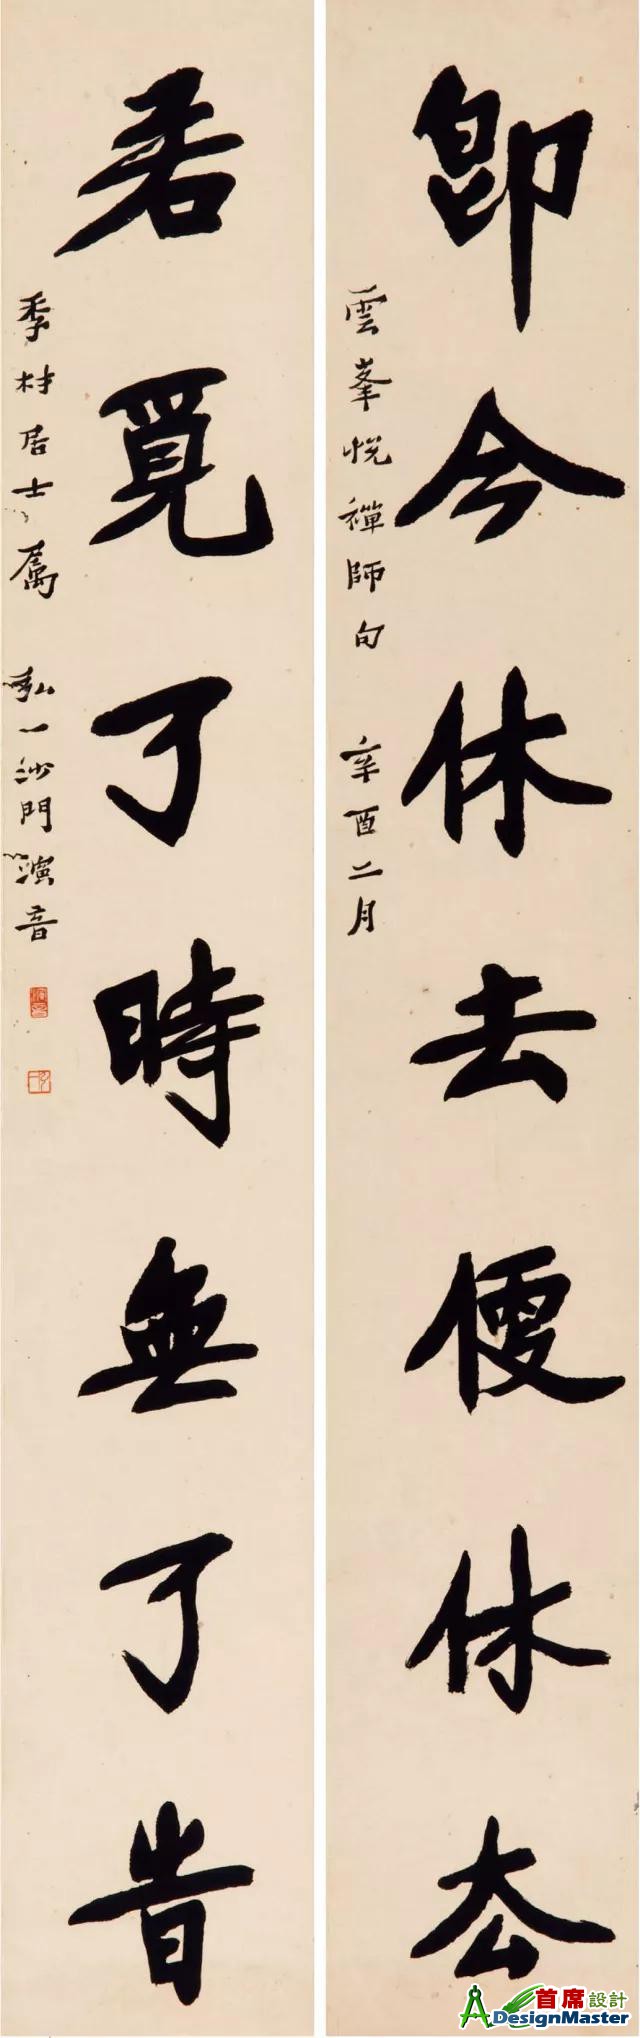 即今休去便休去
雲峯悅禪師句 辛酉二月
若覓了時無了時
季材居士屬 弘一沙門演音
演音
弘一
首席設計
ADesignMaster